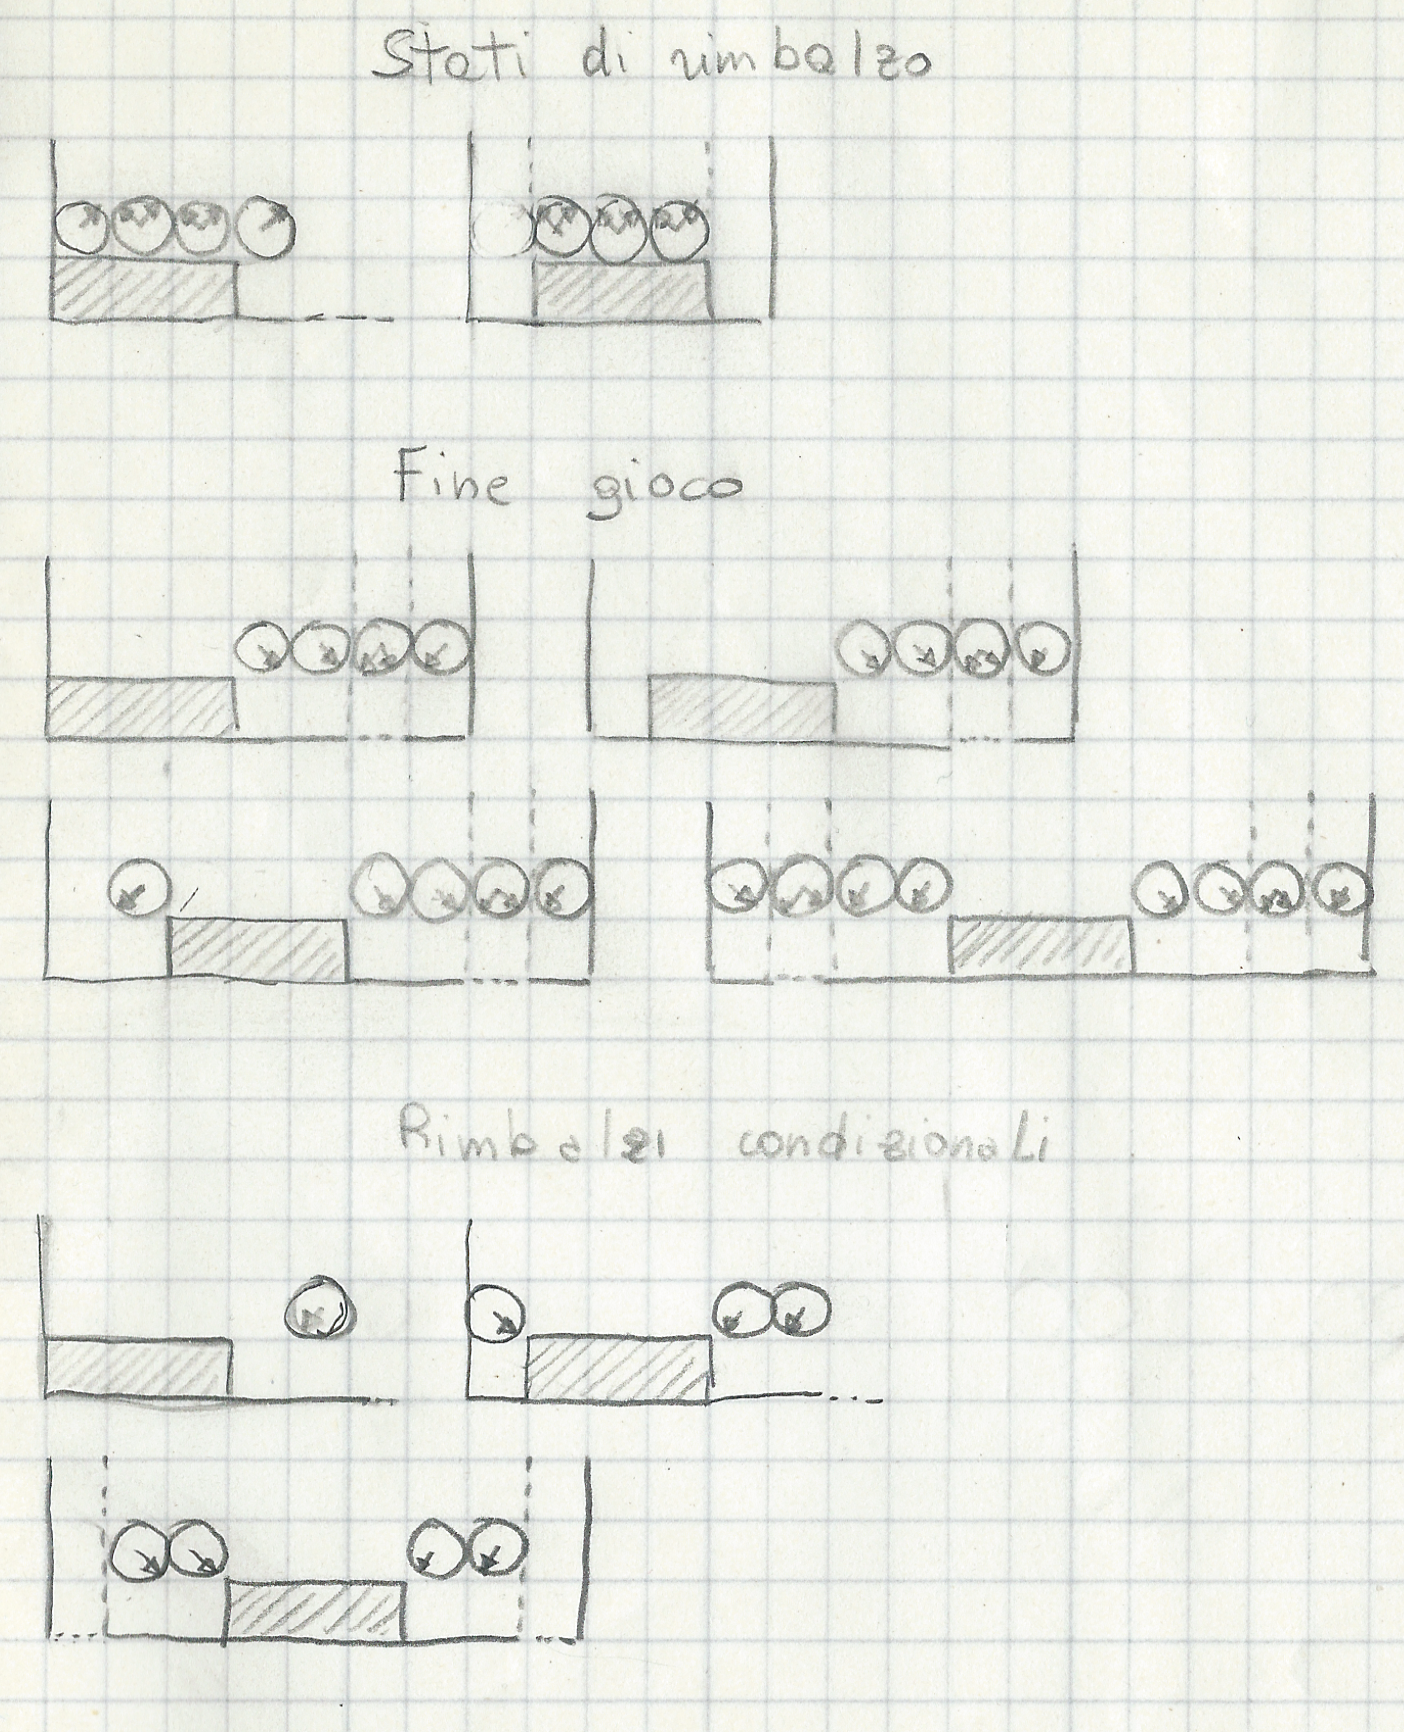 Stati di rimbalzo
Fine gioco
Rimbalzi condizionali